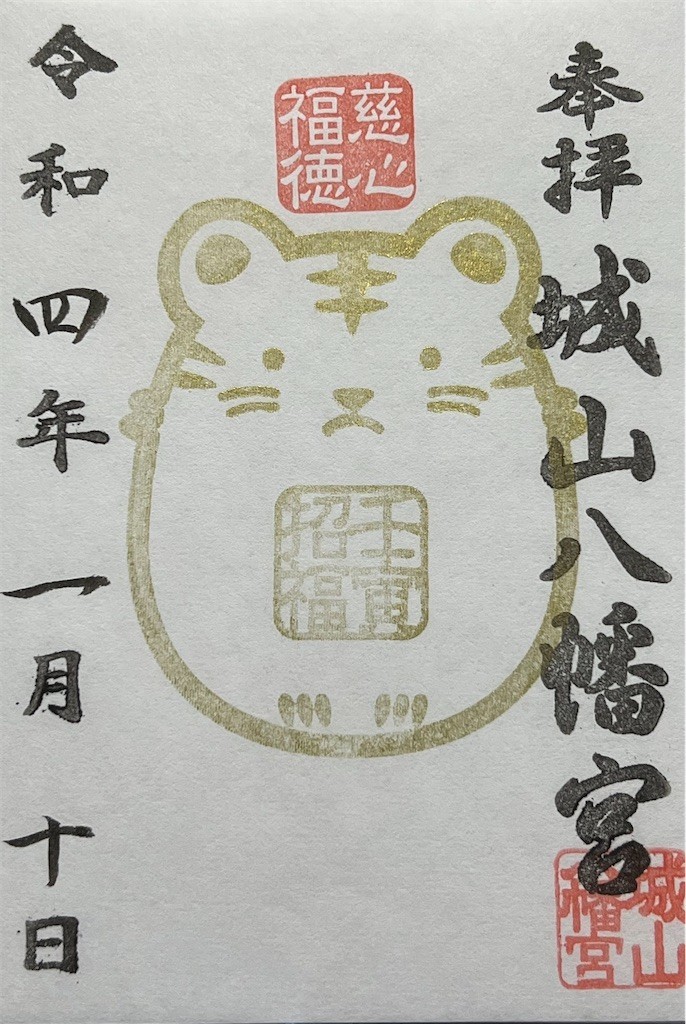 奉拝
城山八幡宮
城山八幡宮
慈心福徳
壬寅招福
令和四年一月十日